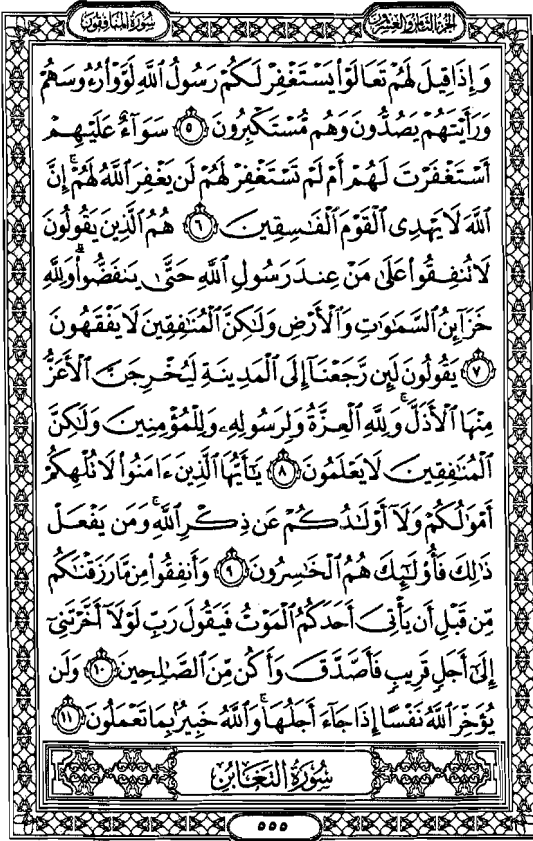 سُورَةُ المُنَافِقُونَ
الجُزْءُ الثَّامِنُ وَالعِشْرُونَ
وَإِذَا قِيلَ لَهُمْ تَعَالَوْا۟ يَسْتَغْفِرْ لَكُمْ رَسُولُ ٱللَّهِ لَوَّوْا۟ رُءُوسَهُمْ
وَرَأَيْتَهُمْ يَصُدُّونَ وَهُم مُّسْتَكْبِرُونَ ٥ سَوَآءٌ عَلَيْهِمْ
أَسْتَغْفَرْتَ لَهُمْ أَمْ لَمْ تَسْتَغْفِرْ لَهُمْ لَن يَغْفِرَ ٱللَّهُ لَهُمْ ۚ إِنَّ
ٱللَّهَ لَا يَهْدِى ٱلْقَوْمَ ٱلْفَـٰسِقِينَ ٦ هُمُ ٱلَّذِينَ يَقُولُونَ
لَا تُنفِقُوا۟ عَلَىٰ مَنْ عِندَ رَسُولِ ٱللَّهِ حَتَّىٰ يَنفَضُّوا۟ ۗ وَلِلَّهِ
خَزَآئِنُ ٱلسَّمَـٰوَٰتِ وَٱلْأَرْضِ وَلَـٰكِنَّ ٱلْمُنَـٰفِقِينَ لَا يَفْقَهُونَ
٧ يَقُولُونَ لَئِن رَّجَعْنَآ إِلَى ٱلْمَدِينَةِ لَيُخْرِجَنَّ ٱلْأَعَزُّ
مِنْهَا ٱلْأَذَلَّ ۚ وَلِلَّهِ ٱلْعِزَّةُ وَلِرَسُولِهِۦ وَلِلْمُؤْمِنِينَ وَلَـٰكِنَّ
ٱلْمُنَـٰفِقِينَ لَا يَعْلَمُونَ ٨ يَـٰٓأَيُّهَا ٱلَّذِينَ ءَامَنُوا۟ لَا تُلْهِكُمْ
أَمْوَٰلُكُمْ وَلَآ أَوْلَـٰدُكُمْ عَن ذِكْرِ ٱللَّهِ ۚ وَمَن يَفْعَلْ
ذَٰلِكَ فَأُو۟لَـٰٓئِكَ هُمُ ٱلْخَـٰسِرُونَ ٩ وَأَنفِقُوا۟ مِن مَّا رَزَقْنَـٰكُم
مِّن قَبْلِ أَن يَأْتِىَ أَحَدَكُمُ ٱلْمَوْتُ فَيَقُولَ رَبِّ لَوْلَآ أَخَّرْتَنِىٓ
إِلَىٰٓ أَجَلٍ قَرِيبٍ فَأَصَّدَّقَ وَأَكُن مِّنَ ٱلصَّـٰلِحِينَ ١٠ وَلَن
يُؤَخِّرَ ٱللَّهُ نَفْسًا إِذَا جَآءَ أَجَلُهَا ۚ وَٱللَّهُ خَبِيرٌۢ بِمَا تَعْمَلُونَ ١١
سُورَةُ التَّغَابُنِ
٥٥٥